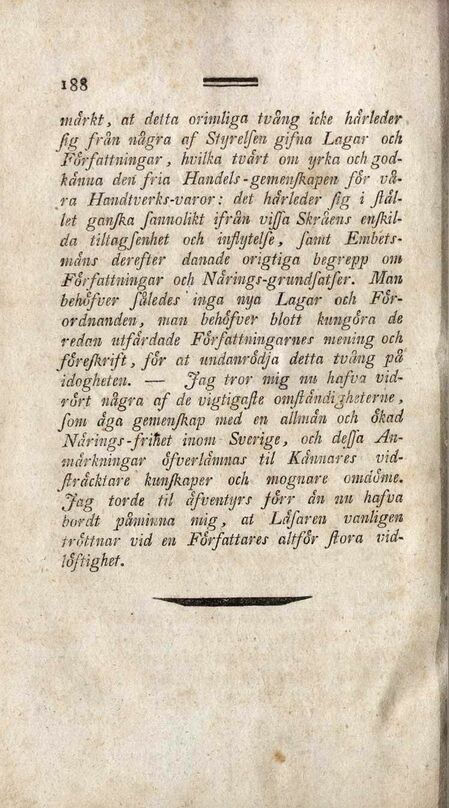 188
märkt, at detta orimliga tvång icke härleder
sig från några af Styrelsen gifna Lagar och
Författningar, hvilka tvärt om yrka och god-
känna den fria Handels-gemenskapen för vå-
ra Handtverks-varor: det härleder sig i stäl-
let ganska sannolikt ifrån vissa Skråens enskil-
da tiltagsenhet och inflytelse, samt Embets-
mäns derefter danade origtiga begrepp om
Författningar och Närings-grundsatser. Man
behöfver således inga nya Lagar och För-
ordnanden, man behöfver blott kungöra de
redan utfärdade Författningarnes mening och
föreskrift, för at undanrödja detta tvång på
idogheten. — Jag tror mig nu hafva vid-
rört några af de vigtigaste omständigheterne,
som äga gemenskap med en allmän och ökad
Närings-frihet inom Sverige, och dessa An-
märkningar öfverlämnas til Kännares vid-
sträcktare kunskaper och mognare omdöme.
Jag torde til äfventyrs förr än nu hafva
bordt påminna mig, at Läsaren vanligen
tröttnar vid en Författares altför stora vid-
löftighet.